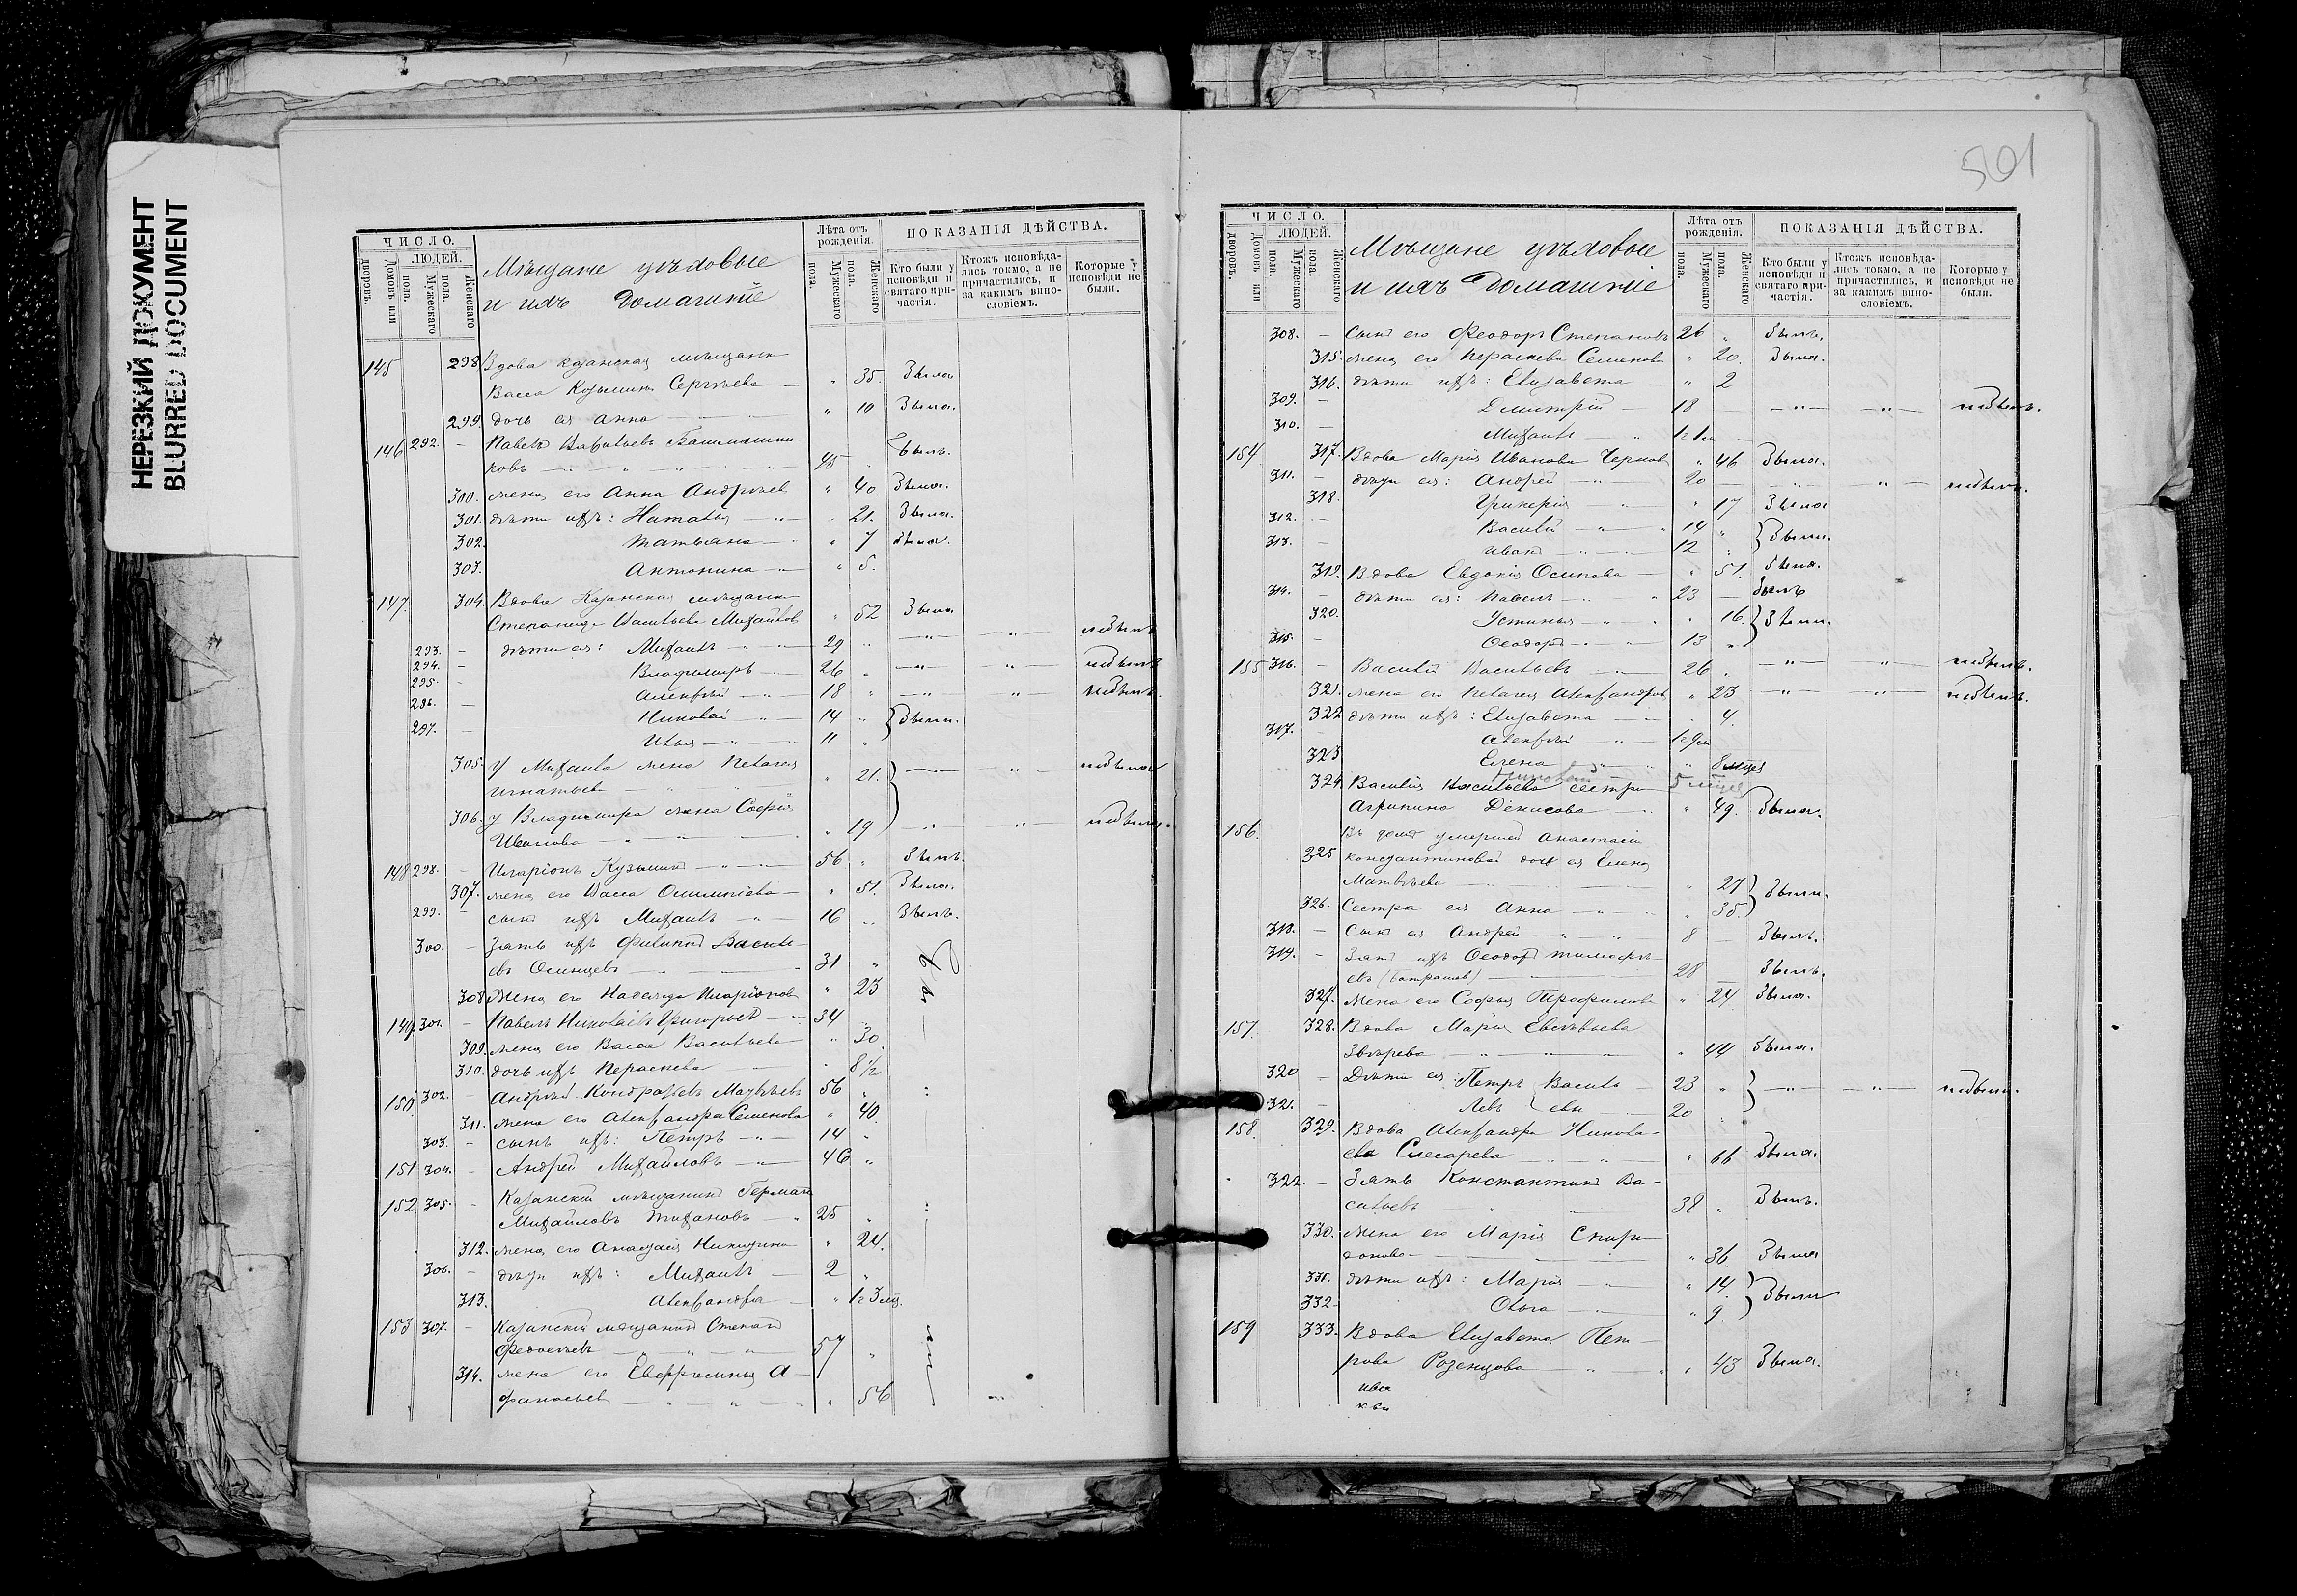 НЕРЕЗКИЙ ДОКУМЕНТ
BLURRED DOCUMENT
ЧИСЛО.
ЛЮДЕЙ.
Домовъ или дворовъ.
Мужескаго пола.
Женскаго пола.
Мѣщане цѣховые
и ихъ домашніе
Лѣта отъ рожденія.
Мужескаго пола.
Женскаго пола.
ПОКАЗАНІЯ ДѢЙСТВА.
Кто были у исповѣди и святаго причастія.
Ктожъ исповѣдались токмо, а не причастились, и за какимъ винословіемъ.
Которые у исповѣди не были.
145 298 Вдова казанская мѣщанк
Васса Козьмина Сергѣева — " 35. Была
299 дочь ея Анна — " 10 Была.
146 292. — Павелъ Савельевъ Башмашни-
ковъ — 45 " Былъ.
300. жена его Анна Андрѣев " 40. Была.
301. дѣти ихъ: Наталья — " 21. Была.
302. Татьяна — " 7 Была.
303. Антонина — " 5.
147. 304. Вдова Казанская мѣщанк
Степанида Васильева Михайлов " 52 Была
293. — дѣти ея: Михаилъ — 29 " — " — " — небылъ
294. — Владимиръ — 26 " — " — " — небылъ
295. — Алексѣй — 18 " — " — " — небылъ.
296. — Николай — 14 " } Были.
297. — Илья — 11 "
305. У Михаила жена Пелагея
Игнатьева — " 21. — " — " — небыла
306. У Владимира жена Софія
Иванова — " 19 — " — " — небыла.
148 298. — Иларіонъ Кузьминъ — 56 " Былъ.
307. жена его Васса Олимпіева — " 51. Была.
299. — сынъ ихъ Михаилъ — 16 " Былъ.
300. — Зять ихъ Филиппъ Василь-
евъ Осинцевъ — 31 "
308 Жена его Надежда Иларіонов " 23
149 301. — Павелъ Николаевъ Григорьев — 34
309. жена его Васса Васильева — " 30.
310. дочь ихъ Параскева — " 8 1/2
150 302. — Андрѣй Кондратьевъ Матвѣевъ 56 "
311. жена его Александра Семенова " 40.
303. — сынъ ихъ: Петръ — 14 "
151 304. — Андрей Михайловъ — 46 "
152 305. — Казанскій мѣщанинъ Герман
Михайловъ Тихановъ — 25 "
312. жена его Анастасія Никитина " 24.
306. — дѣти ихъ: Михаилъ — 2 "
313. Александра — " 1г 3 мц.
153 307. — Казанскій мѣщанинъ Степанъ
Федосѣевъ — 57 "
314. жена его Евфросинья А-
фанасьев — " 56
501
ЧИСЛО.
ЛЮДЕЙ.
Домовъ или дворовъ.
Мужескаго пола.
Женскаго пола.
Мѣщане цѣховые
и ихъ домашніе
Лѣта отъ рожденія.
Мужескаго пола.
Женскаго пола.
ПОКАЗАНІЯ ДѢЙСТВА.
Кто были у исповѣди и святаго причастія.
Ктожъ исповѣдались токмо, а не причастились, и за какимъ винословіемъ.
Которые у исповѣди не были.
308. — сынъ его Феодоръ Степановъ 26 " Былъ.
315. жена его Параскева Семенова " 20. Была.
316. дѣти ихъ: Елизавета — " 2
309. — Дмитрій — 18 — " — " — небылъ.
310. — Михаилъ — 1г 1м —
154 317. Вдова Марія Иванова Чернов " 46 Была.
311. — дѣти ея: Андрей — 20 — " — " — небылъ.
318. Гликерія — " 17 Была
312. — Василій — 14 " } Были.
313. — Иванъ — 12 "
319. Вдова Евдокія Осипова — " 51. Была.
314. — дѣти ея: Павелъ — 23 — Былъ
320. Устинья — " 16. } Были.
315. — Феодоръ — 13 "
155 316. — Василій Васильевъ — 26 " — " — " — небылъ.
321. жена его Пелагея Александров " 23 — " — " — небылъ.
322 дѣти ихъ: Елизавета — " 4.
317. — Алексѣй — 1г 9м
323 Елена — " 8 мцев
Николай 5 мцев
324. Василія Васильева сестра
Агрипина Денисова — " 49. Была.
156. Въ домѣ умершей Анастасіи
325 Константиновой дочь ея Елена
Матвѣева — " 27 } Были.
326. Сестра ея Анна — " 35.
318. — Сынъ ея Андрей — 8 — Былъ.
319. — Зять ихъ Феодоръ Тимофѣ-
евъ — 28 — Былъ.
327. Жена его Софья Трофимова " 24 Была.
157. 328. Вдова Марія Евсѣвьева
Звѣрева — " 44 Была.
320 — Дѣти ея: Петръ { Василь- 23 " } — " — " — небыли.
321. — Левъ { евы — 20 "
158. 329. Вдова Александра Никола-
ева Слесарева — " 66 Была.
322. — Зять Константинъ Ва-
сильевъ 38 " Былъ.
330. жена его Марія Спири-
донова — " 36 Была
331. дѣти ихъ: Марія — " 14. } Были
332. Ольга — " 9.
159 333. Вдова Елизавета Пет-
рова Розенцова — " 43 Была.